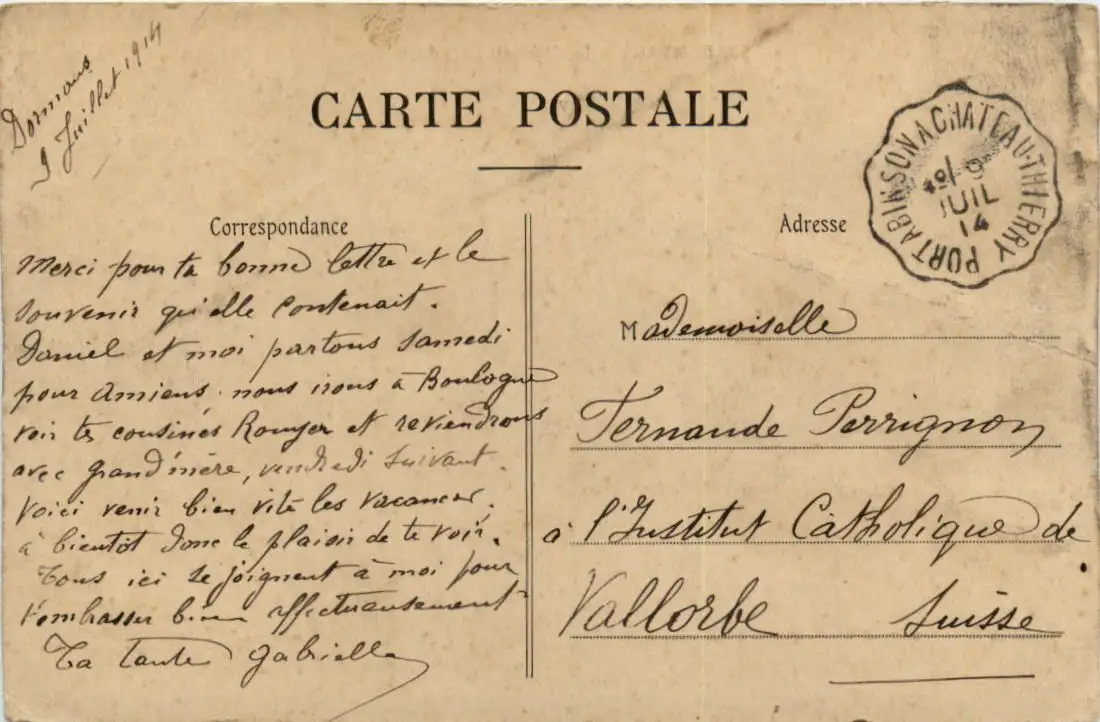 Dormans
9 Juillet 1914
CARTE POSTALE
PORT A BINSON A CHATEAU-THIERRY
9
JUIL
14
Correspondance
Adresse
Merci pour ta bonne lettre et le
souvenir qu'elle contenait.
Daniel et moi partons samedi
pour Amiens. nous irons à Boulogne
voir tes cousines Rouyer et reviendrons
avec grand'mère, vendredi suivant.
Voici venir bien vite les vacances,
à bientôt donc le plaisir de te voir.
Tous ici se joignent à moi pour
t'embrasser bien affectueusement
Ta tante Gabrielle
Mademoiselle
Fernande Perrignon
à l'Institut Catholique de
Vallorbe Suisse